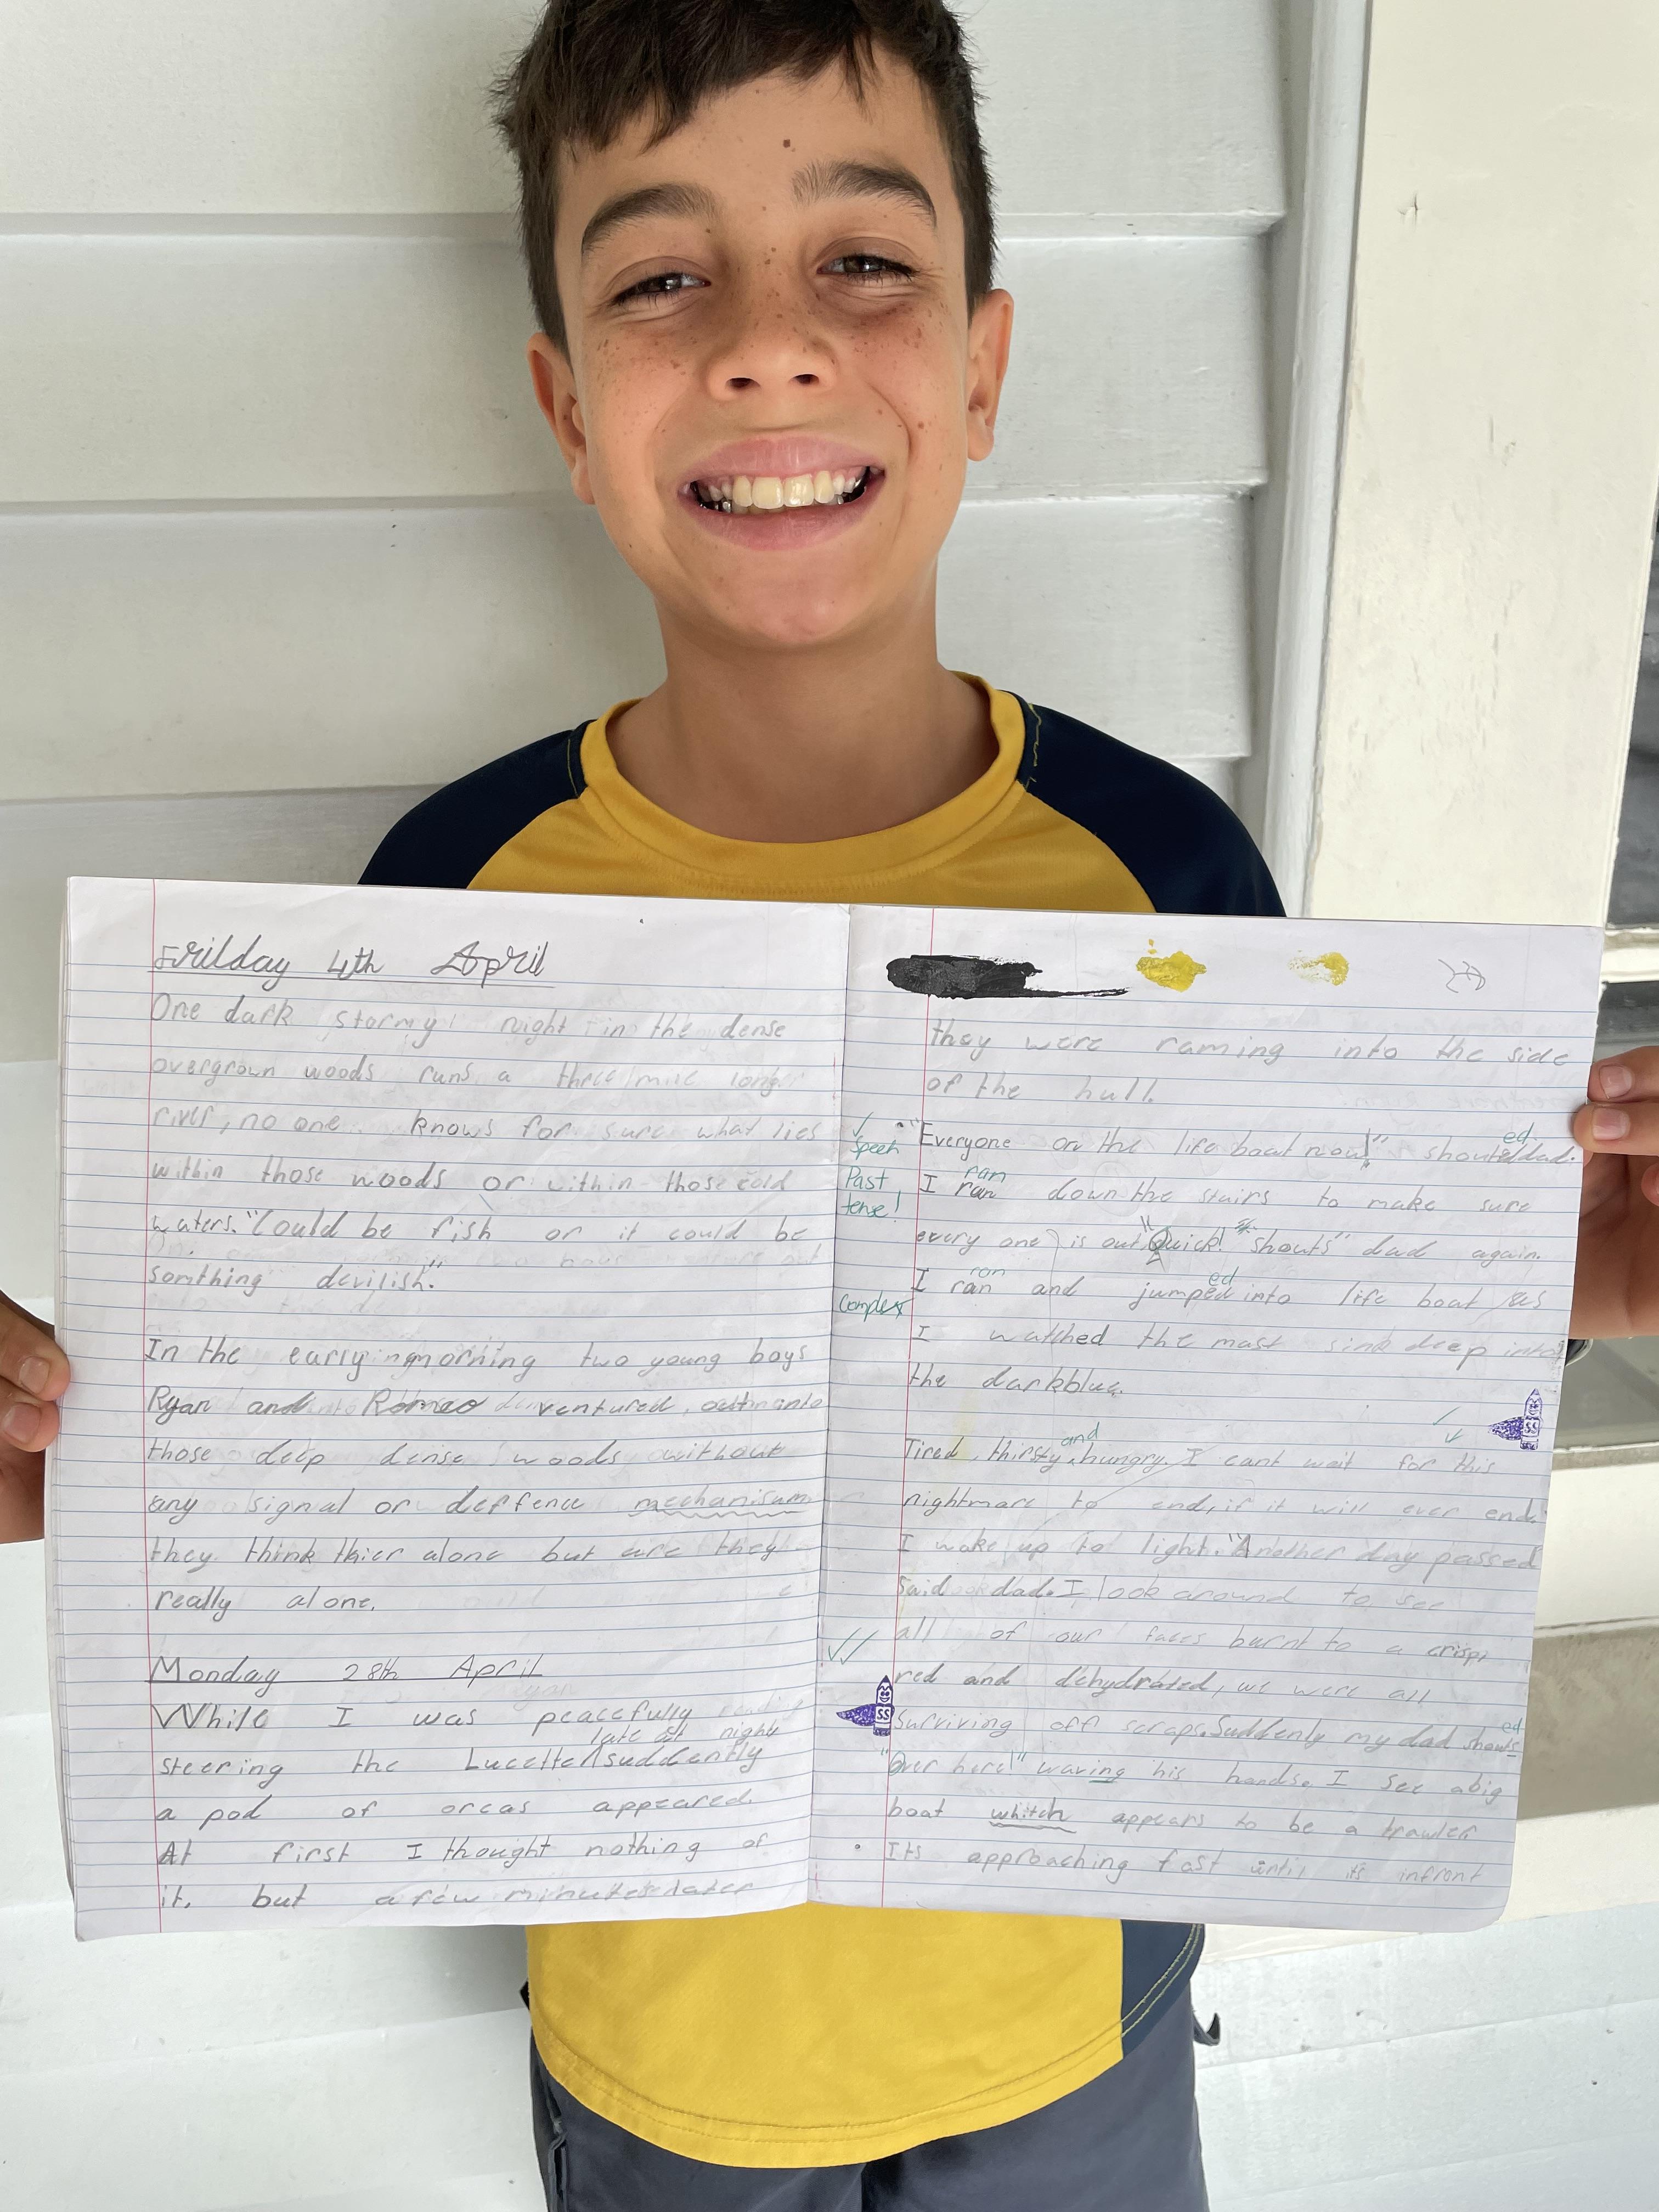 Frilday 4th April
One dark stormy night in the dense
overgrown woods runs a three mile longer
river, no one knows for sure what lies
within those woods or within those cold
waters. "Could be fish or it could be
somthing devilish".
In the early morning two young boys
Ryan and Romeo ventured, out into
those deep dense woods without
any signal or deffence mechanisum
they think thier alone but are they
really alone.
Monday 28th April
While I was peacefully
late at night
steering the Lucette suddently
a pod of orcas appeared.
At first I thought nothing of
it, but a few minutes later
they were raming into the side
of the hull.
✓ Speech
Past tense!
"Everyone on the life boat now!" shouted dad.
ran
I ran down the stairs to make sure
every one is out "Quick!" shouts" dad again.
ran ed
I ran and jumped into life boat
complex
I watched the mast sink deep into
the darkblue.
and
Tired, thirsty, hungry. I cant wait for this
nightmare to end, if it will ever end.
I wake up to light. "Another day passed
said dad. I look around to see
all of our faces burnt to a crisp,
red and dehydrated, we were all
SS
surviving off scraps. Suddenly my dad shouts
ed
"Over here!" waving his hands. I see abig
boat whitch appears to be a trawler
Its approaching fast until its infront
SS